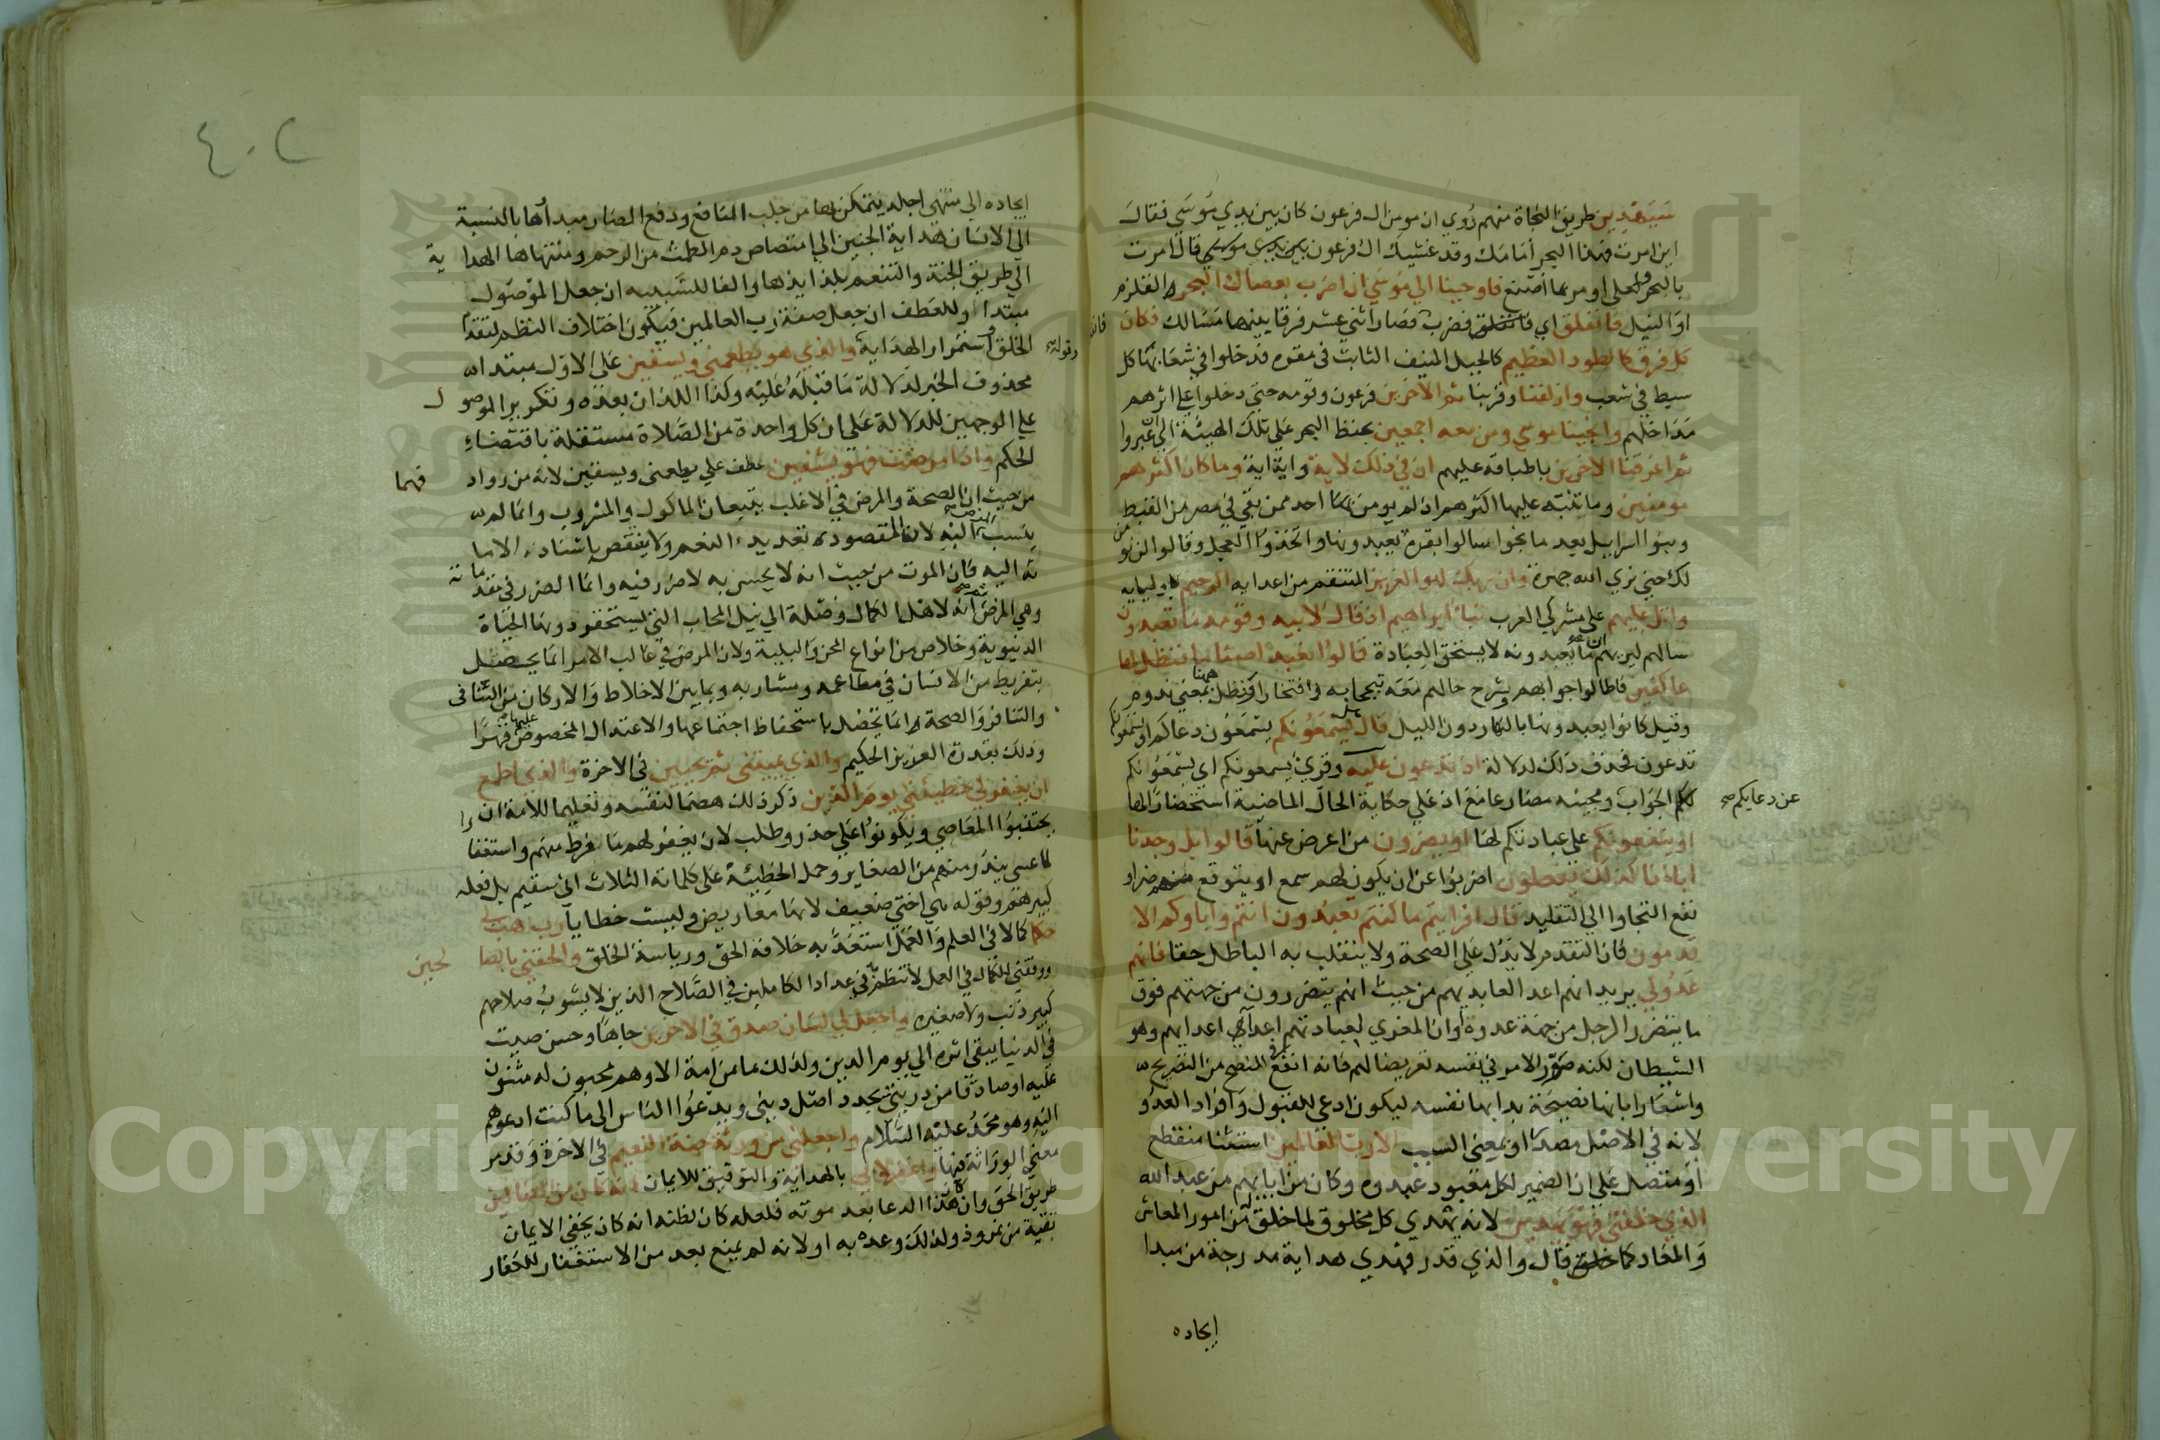 سَيَهْدِينِ طريق النجاة منهم رُوي ان مومن ال فرعون كان بين يدي موسَي فقال
اين امرت فهذا البحر أمامك وقد غشيك ال فرعون بين يدي موسي قال امرت
بالبحر ولعلي اومر بما اصنع فاوحينا الي موسَي ان اضرب بعصاك البحر القلزم
او النيل فانفلق اي فانفلق فضرب فصار اثني عشر فرقا بينهما مسَالك فكان
كل فرق كالطود العظيم كالجبل المنيف الثابت في مقره فدخلوا في شعابها كل
سبط في شعب وازلفنا وقربنا ثم الاخرين فرعون وقومه حتى دخلوا علي اثرهم
مَدَاخلهم وانجينا موسي ومن معه اجمعين بحفظ البحر علي تلك الهيئة الي عبروا
ثم اغرقنا الاخرين باطباقه عليهم ان في ذلك لاية واية اية وما كان اكثرهم
مومنين وما يتنبه عليها اكثرهم اذ لم يومن بها احد ممن بقي في مصر من القبط
وبنوا اسراييل بعد ما نجوا سالوا بقرة يعبدونها واتخذوا العجل وقالوا لن نومن
لك حتي نري الله جهرة وان ربك لهو العزيز المنتقم من اعدايه الرحيم باوليايه
واتل عليهم علي مشركي العرب نبا ابراهيم اذ قال لابيه وقومه ما تعبدون
سالهم ليريهم ان ما يعبدونه لا يستحق العبادة قالوا نعبد اصناما فنظل لها
عاكفين فاطالوا جوابهم بشرح حالهم معه تبجحا به وافتخارا ونظل ههنا بمعني ندوم
وقيل كانوا يعبدونها بالنهار دون الليل قال هل يسمعونكم يسمعون دعاكم او يسمعونكم
تدعون فحذف ذلك لدلالة اذ تدعون عليه وقريْ يسمعونكم اي يسمعونكم
الجواب ومجيئه مضارعا مع اذ علي حكاية الحال الماضية استحضارا لها
عن دعايكم صح
او ينفعونكم علي عبادتكم لها او يضرون من اعرض عنها قالوا بل وجدنا
اباءنا كذلك يفعلون اضربوا عن ان يكون لهم سمع او يتوقع منهم ضر او
نفع التجاوا الي التقليد قال افرايتم ما كنتم تعبدون انتم واباوكم الا
قدمون فان التقدم لا يدل علي الصحة ولا ينقلب به الباطل حقا فانهم
عَدُو لي يريد انهم اعدا لعابديهم من حيث انهم يتضررون من جهتهم فوق
ما يتضرر الرجل من جهة عدوه او ان المغري لعبادتهم اعدا اعدايهم وهو
الشيطان لكنه صور الامر في نفسه تعريضا لهم فانه انفع في النصح من التصريح
واشعارا بانها نصيحة بدا بها نفسه ليكون ادعي للقبول وافراد العدو
لانه في الاصل مصدر او بمعني النسب الا رب العالمين استثنا منقطع
او متصل علي ان الضمير لكل معبود عبدوه وكان من ابايهم من عبد الله
الذي خلقني فهو يهدين لانه يهدي كل مخلوق لما خلق له من امور المعاش
والمعاد كما قال والذي قدر فهدي هداية مدرجة من مبدا
ايجاده
٤٠٢
ايجاده الي منتهي اجله يتمكن بها من جلب المنافع ودفع المضار مبدأها بالنسبة
الي الانسان هداية الجنين الي امتصاص دم الطمث من الرحم ومنتهاها الهداية
الي طريق الجنة والتنعم بلذايذها والفا للسببيه ان جعل الموصول
مبتدا وللعطف ان جعل صفة رب العالمين فيكون اختلاف النظم لتقدم
الخلق واستمرار الهداية وقوله والذي هو يطعمني ويسقين علي الاول مبتدا
محذوف الخبر لدلالة ما قبله عليه وكذا اللذان بعده وتكرير الموصول
علي الوجهين للدلالة علي ان كل واحدة من الصلاة مستقلة باقتضاء
الحكم واذا مرضت فهو يشفين عطف علي يطعمني ويسقين لانه من روادفهما
من حيث ان الصحة والمرض في الاغلب يتبعان الماكول والمشروب وانما لم
ينسب المرض اليه لان المقصود تعديد النعم ولا ينقض باسناد الاما
تة اليه فان الموت من حيث انه لا يحس به لا ضرر فيه وانما الضرر في مقدماته
وهي المرض ثم انه لاهل الكمال وصلة الي نيل المحاب التي يستحقر دونها الحياة
الدنيوية وخلاص من انواع المحن والبلية ولان المرض في غالب الامر انما يحصل
بتفريط من الانسان في مطاعمه ومشاربه وبما بين الاخلاط والاركان من التنافي
والتنافر والصحة انما تحصل باستحفاظ اجتماعها والاعتدال المخصوص عليها قهرا
وذلك بقدرة العزيز الحكيم والذي يميتني ثم يحيين في الاخرة والذي اطمع
ان يغفر لي خطيئتي يوم الدين ذكر ذلك هضما لنفسه وتعليما للامة ان
يجتنبوا المعاصي ويكونوا علي حذر وطلب لان يغفر لهم ما يفرط منهم واستغفارا
لما عسي يندر منهم من الصغاير وحمل الخطيئة علي كلماته الثلاث اني سقيم بل فعله
كبيرهم وقوله هي اختي ضعيف لانها معاريض وليست خطايا رب هب لي
حكما كمالا في العلم والعمل استعد به خلافة الحق ورياسة الخلق والحقني بالصالحين
ووفقني للكمال في العمل لانتظم في عداد الكاملين في الصلاح الذين لا يشوب صلاحهم
كبير ذنب ولا صغيره واجعل لي لسان صدق في الاخرين جاها وحسن صيت
في الدنيا يبقي اثره الي يوم الدين ولذلك ما من امة الا وهم محبون له مثنون
عليه او صادقا من ذريتي يجدد اصل ديني ويدعوا الناس الي ما كنت ادعوهم
اليه وهو محمد عليه السلام واجعلني من ورثة جنة النعيم في الاخرة وقد مر
معني الوراثة فيها واغفر لابي بالهداية والتوفيق للايمان انه كان من الضالين
طريق الحق وان كان هذا الدعا بعد موته فلعله كان لظنه انه كان يخفي الايمان
تقية من نمروذ ولذلك وعده به او لانه لم يمنع بعد من الاستغفار للكفار